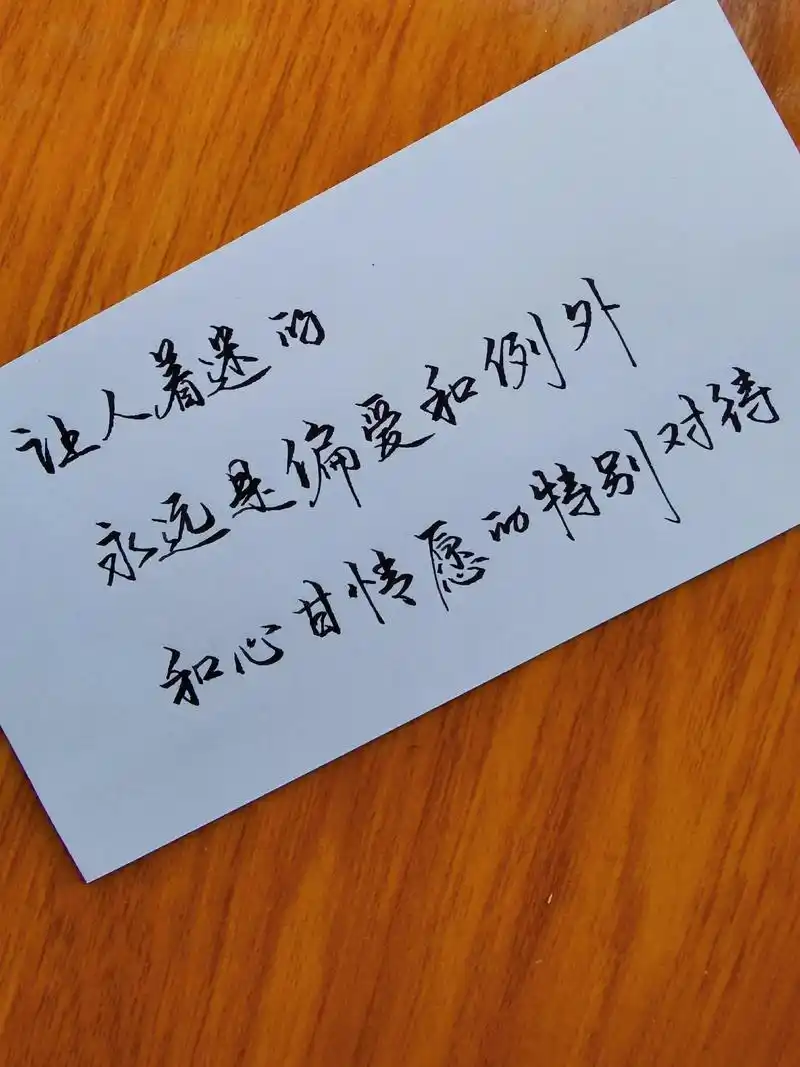 让人着迷的
永远是偏爱和例外
和心甘情愿的特别对待